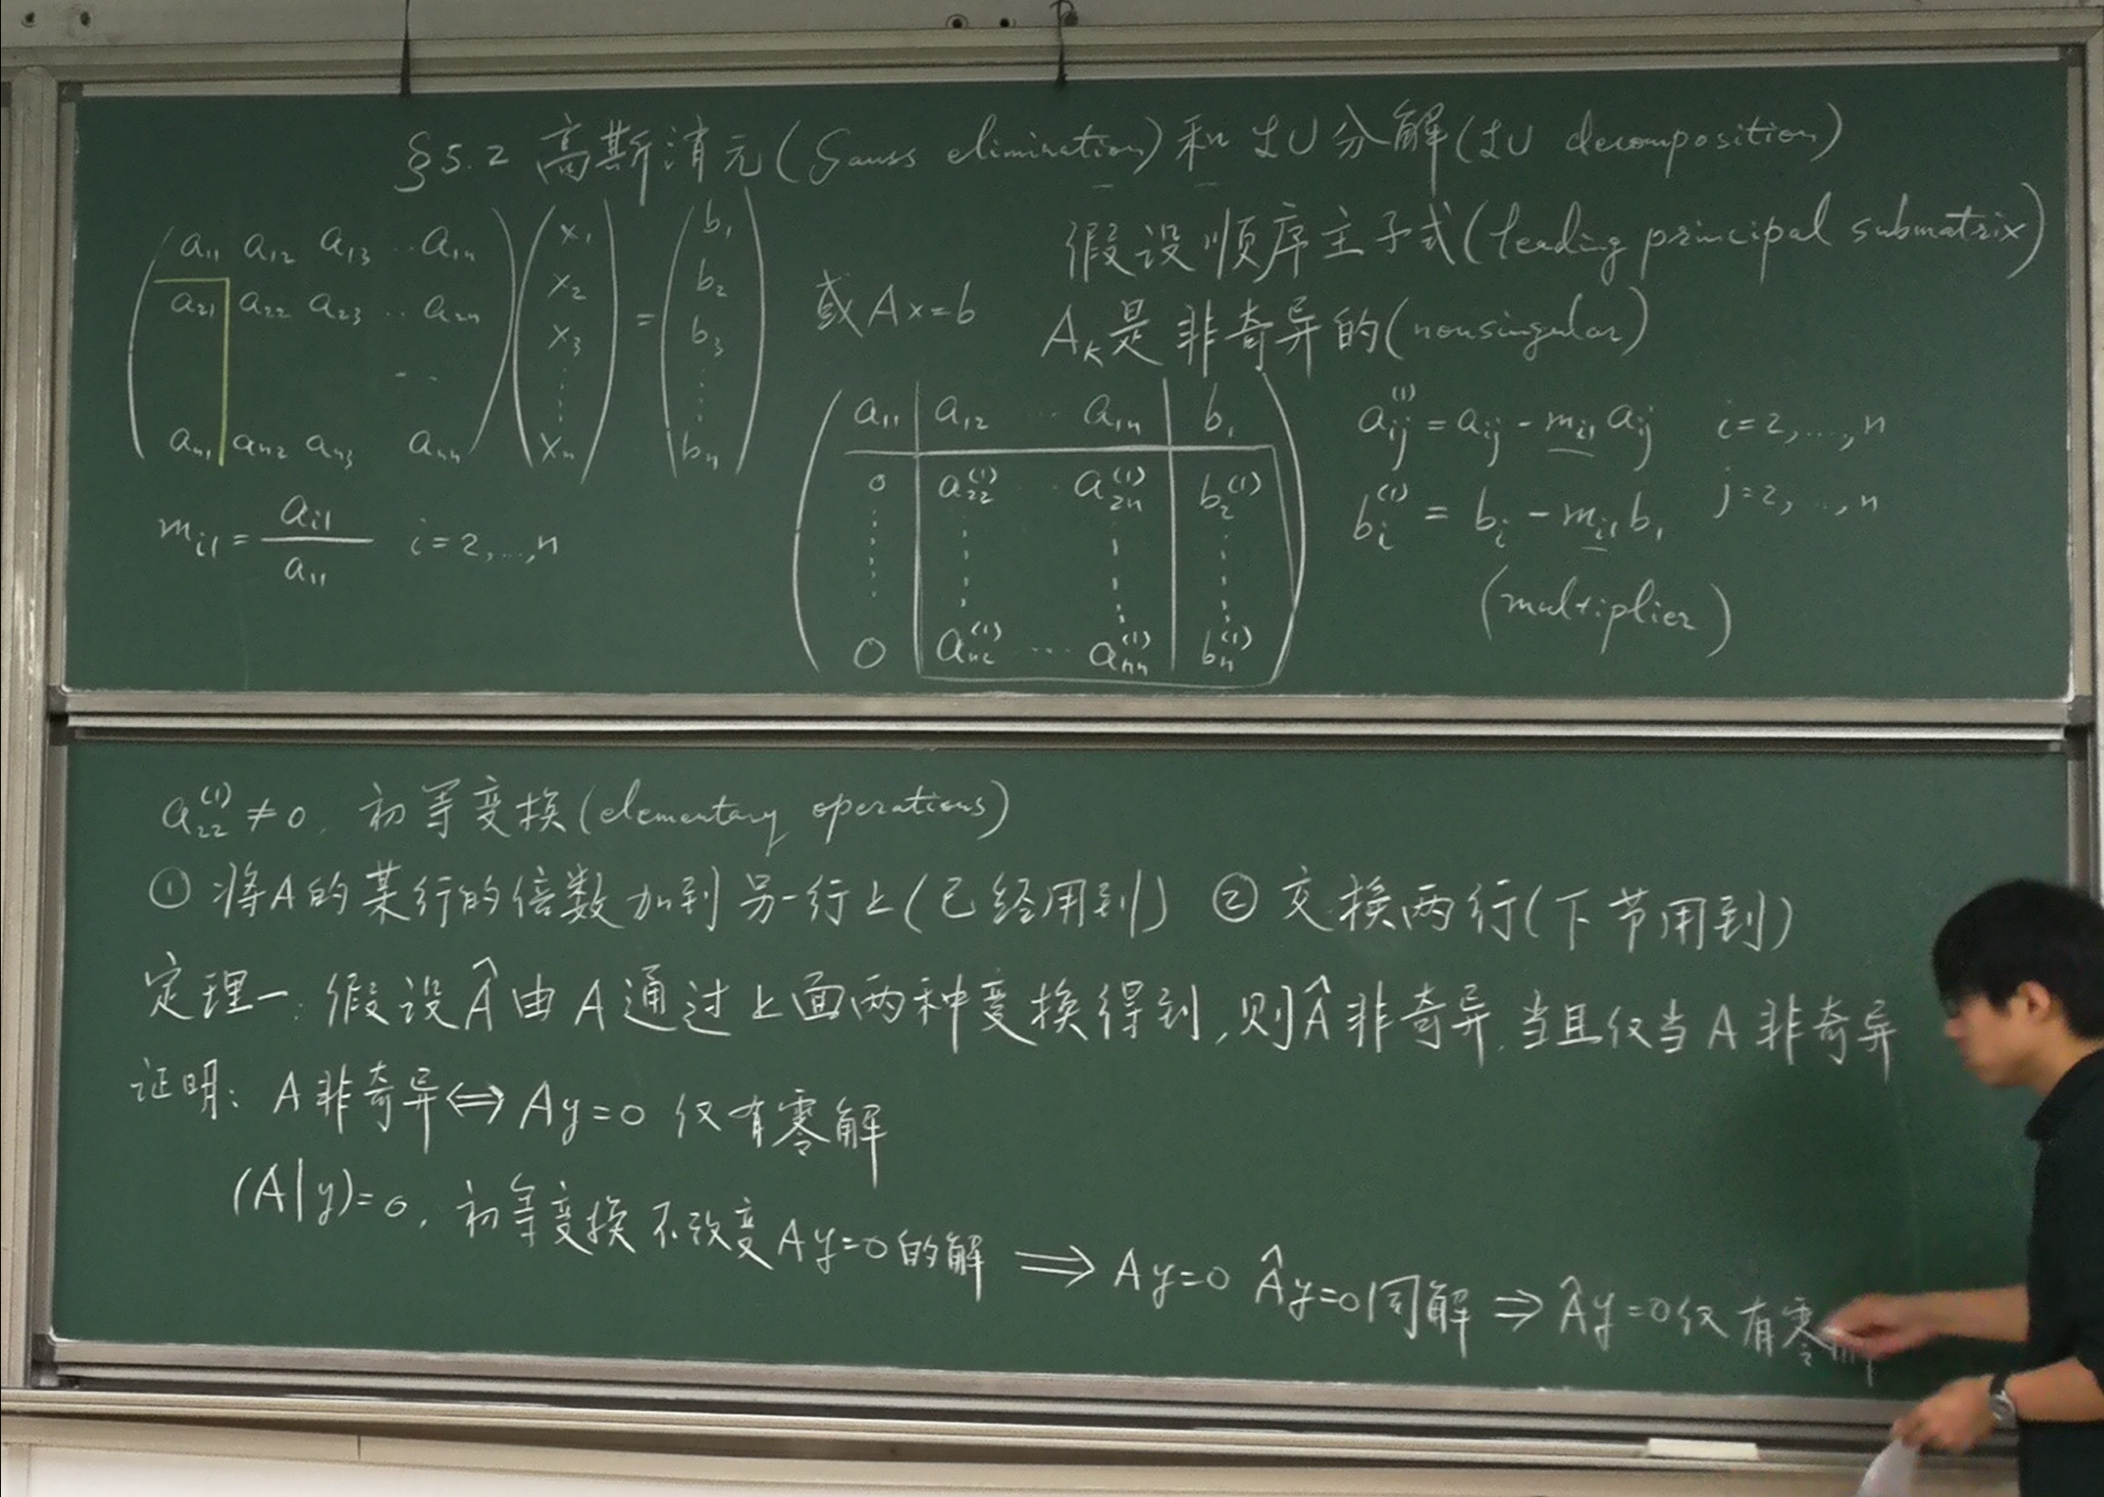 §5.2 高斯消元(Gauss elimination)和LU分解(LU decomposition)
a₁₁ a₁₂ a₁₃ ‥ a₁ₙ
a₂₁ a₂₂ a₂₃ ‥ a₂ₙ
‥
aₙ₁ aₙ₂ aₙ₃ aₙₙ
x₁
x₂
x₃
⋮
xₙ
=
b₁
b₂
b₃
⋮
bₙ
或Ax=b
m_{i1} = a_{i1}/a₁₁ i=2,...,n
假设顺序主子式(leading principal submatrix)
A_K是非奇异的(nonsingular)
a₁₁ a₁₂ ‥ a₁ₙ b₁
0 a₂₂^{(1)} ‥ a₂ₙ^{(1)} b₂^{(1)}
⋮ ⋮ ⋮ ⋮
0 aₙ₂^{(1)} … aₙₙ^{(1)} bₙ^{(1)}
a_{ij}^{(1)} = a_{ij} - m_{i1} a_{ij} i=2,...,n
b_i^{(1)} = b_i - m_{i1} b₁ j=2,...,n
(multiplier)
a₂₂^{(1)} ≠ 0, 初等变换(elementary operations)
① 将A的某行的倍数加到另一行上(已经用到) ② 交换两行(下节用到)
定理一: 假设Â由A通过上面两种变换得到,则Â非奇异,当且仅当A非奇异
证明: A非奇异⇔Ay=0 仅有零解
(A|y)=0, 初等变换不改变Ay=0的解 ⟹ Ay=0 Ây=0同解 ⇒ Ây=0仅有零解